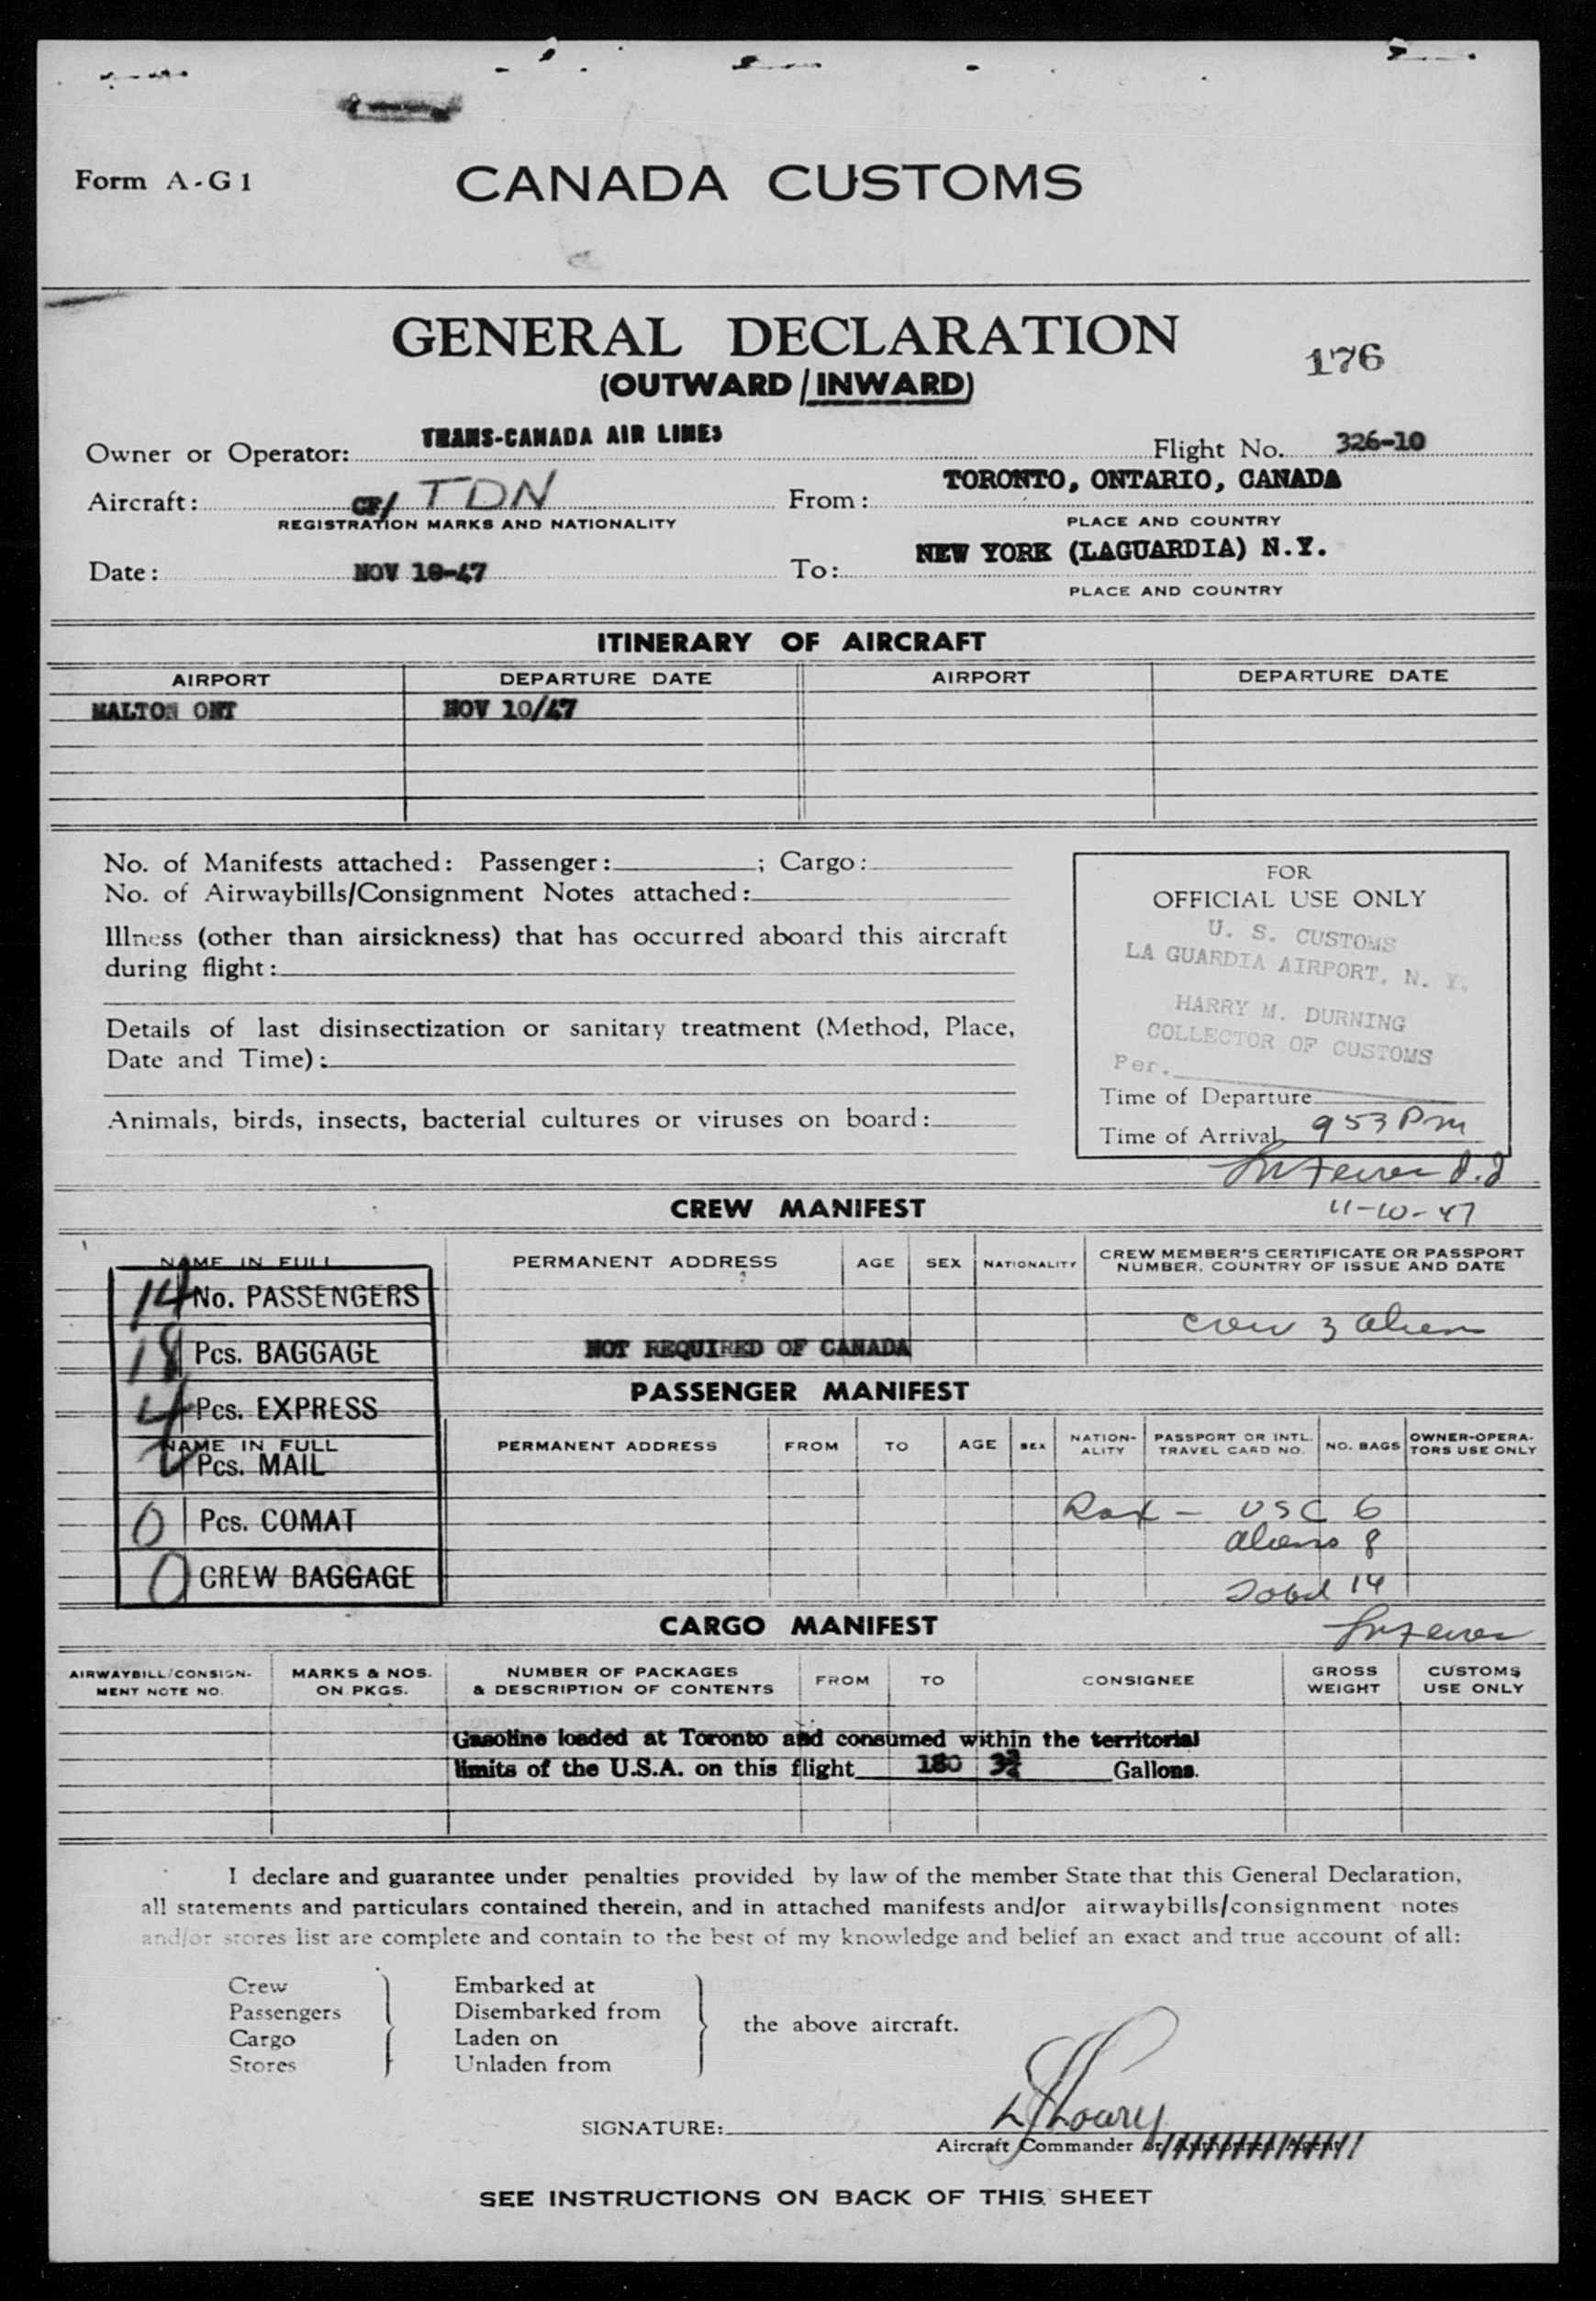 Form A-G1
CANADA CUSTOMS
GENERAL DECLARATION
(OUTWARD/INWARD)
176
Owner or Operator: TRANS-CANADA AIR LINES
Flight No. 326-10
Aircraft: CF/ TDN
REGISTRATION MARKS AND NATIONALITY
From: TORONTO, ONTARIO, CANADA
PLACE AND COUNTRY
Date: NOV 10-47
To: NEW YORK (LAGUARDIA) N.Y.
PLACE AND COUNTRY
ITINERARY OF AIRCRAFT
AIRPORT DEPARTURE DATE AIRPORT DEPARTURE DATE
MALTON ONT NOV 10/47
No. of Manifests attached: Passenger: ; Cargo:
No. of Airwaybills/Consignment Notes attached:
Illness (other than airsickness) that has occurred aboard this aircraft
during flight:
Details of last disinsectization or sanitary treatment (Method, Place,
Date and Time):
Animals, birds, insects, bacterial cultures or viruses on board:
FOR
OFFICIAL USE ONLY
U. S. CUSTOMS
LA GUARDIA AIRPORT, N. Y.
HARRY M. DURNING
COLLECTOR OF CUSTOMS
Per.
Time of Departure
Time of Arrival 953 Pm
11-10-47
CREW MANIFEST
NAME IN FULL PERMANENT ADDRESS AGE SEX NATIONALITY CREW MEMBER'S CERTIFICATE OR PASSPORT
NUMBER, COUNTRY OF ISSUE AND DATE
14 No. PASSENGERS
crew 3 aliens
18 Pcs. BAGGAGE
NOT REQUIRED OF CANADA
PASSENGER MANIFEST
4 Pcs. EXPRESS
NAME IN FULL PERMANENT ADDRESS FROM TO AGE SEX NATION-
ALITY PASSPORT OR INTL.
TRAVEL CARD NO. NO. BAGS OWNER-OPERA-
TORS USE ONLY
Pcs. MAIL
USC 6
0 Pcs. COMAT
aliens 8
0 CREW BAGGAGE
Total 14
CARGO MANIFEST
AIRWAYBILL/CONSIGN-
MENT NOTE NO. MARKS & NOS.
ON PKGS. NUMBER OF PACKAGES
& DESCRIPTION OF CONTENTS FROM TO CONSIGNEE GROSS
WEIGHT CUSTOMS
USE ONLY
Gasoline loaded at Toronto and consumed within the territorial
limits of the U.S.A. on this flight 180 Gallons.
I declare and guarantee under penalties provided by law of the member State that this General Declaration,
all statements and particulars contained therein, and in attached manifests and/or airwaybills/consignment notes
and/or stores list are complete and contain to the best of my knowledge and belief an exact and true account of all:
Crew
Passengers
Cargo
Stores
Embarked at
Disembarked from
Laden on
Unladen from
the above aircraft.
SIGNATURE:
Aircraft Commander or Authorized Agent
SEE INSTRUCTIONS ON BACK OF THIS SHEET